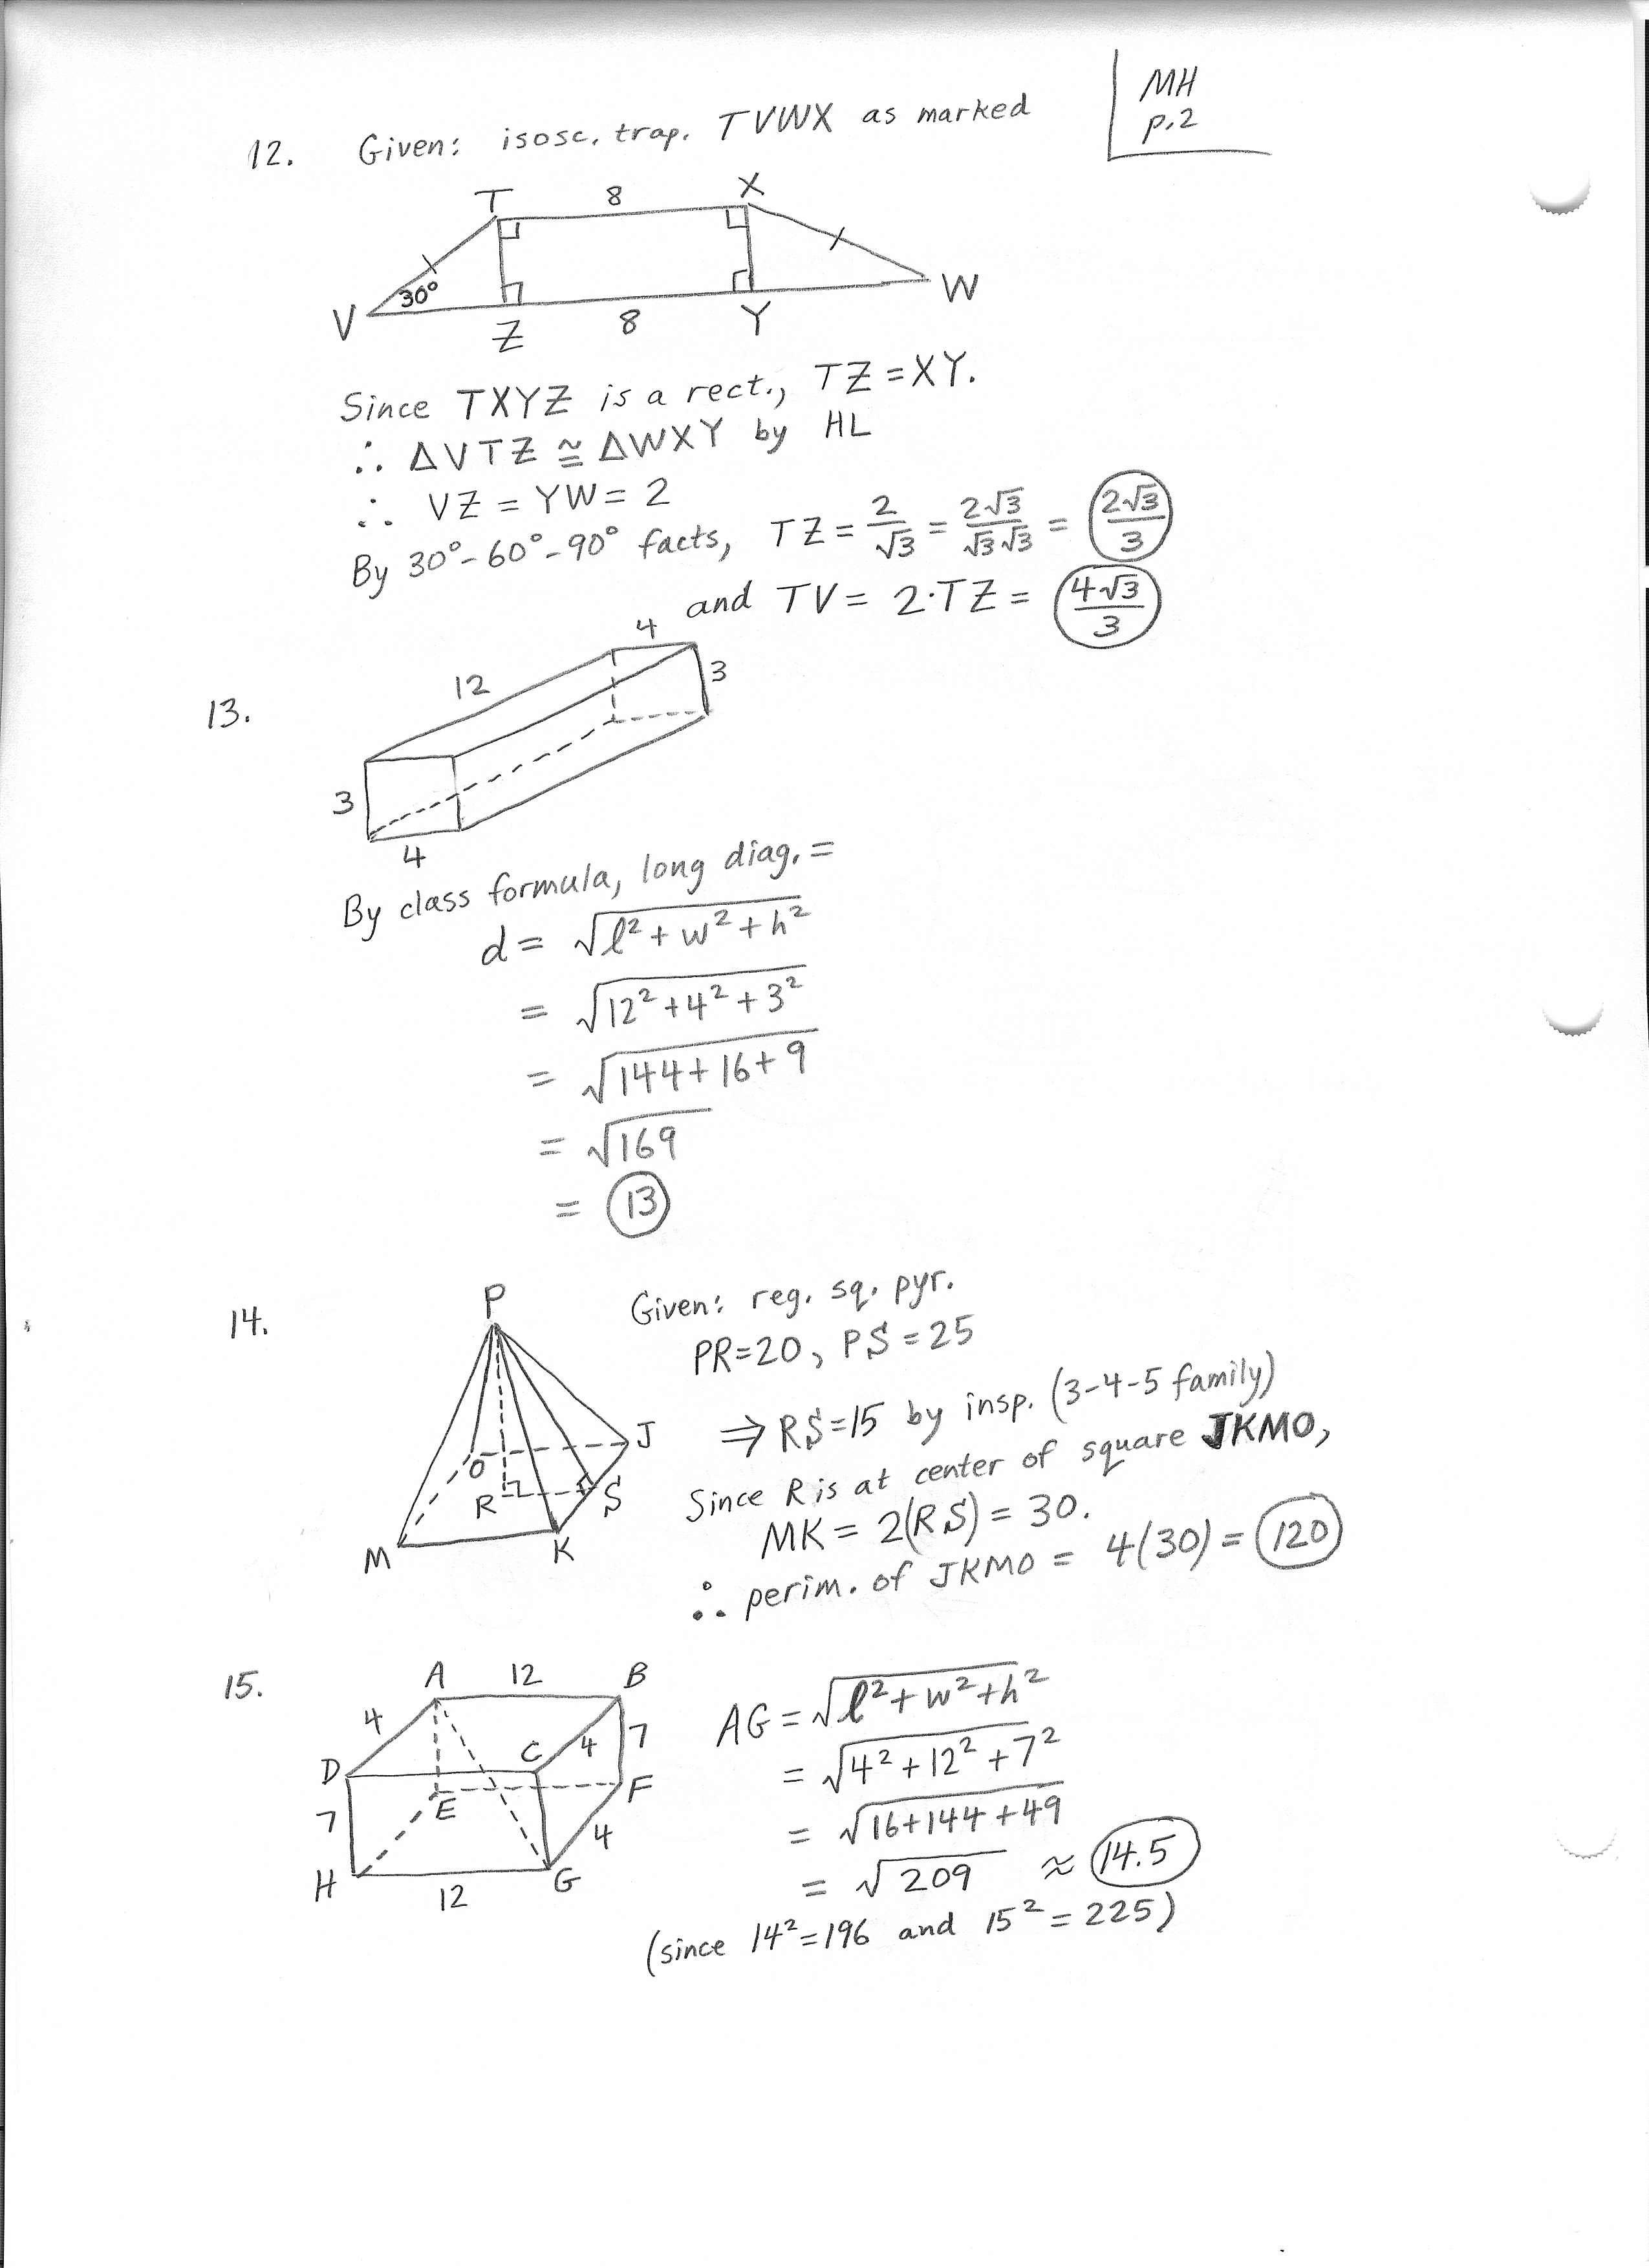 MH
p.2
12. Given: isosc. trap. TVWX as marked
T 8 X
30°
V Z 8 Y W
Since TXYZ is a rect., TZ = XY.
∴ ΔVTZ ≅ ΔWXY by HL
∴ VZ = YW = 2
By 30°-60°-90° facts, TZ = 2/√3 = 2√3/√3√3 = 2√3/3
and TV = 2·TZ = 4√3/3
13.
4
12 3
3
4
By class formula, long diag. =
d = √l²+w²+h²
= √12²+4²+3²
= √144+16+9
= √169
= 13
14. P Given: reg. sq. pyr.
PR=20, PS=25
⇒ RS=15 by insp. (3-4-5 family)
J
O
R S
M K
Since R is at center of square JKMO,
MK = 2(RS) = 30.
∴ perim. of JKMO = 4(30) = 120
15. A 12 B
4 C 4 7
D E F
7 4
H 12 G
AG = √l²+w²+h²
= √4²+12²+7²
= √16+144+49
= √209 ≈ 14.5
(since 14²=196 and 15²=225)